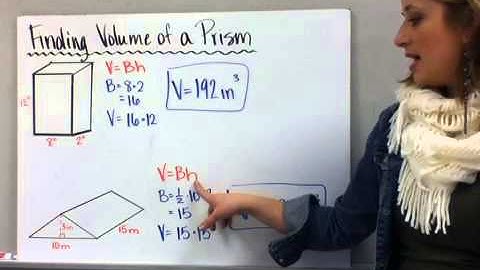 Finding Volume of a Prism
V=Bh
B=8·2
=16
V=16·12
V=192in³
12"
8"
2"
V=Bh
B=½·10
=15
V=15·15
3m
10m
15m